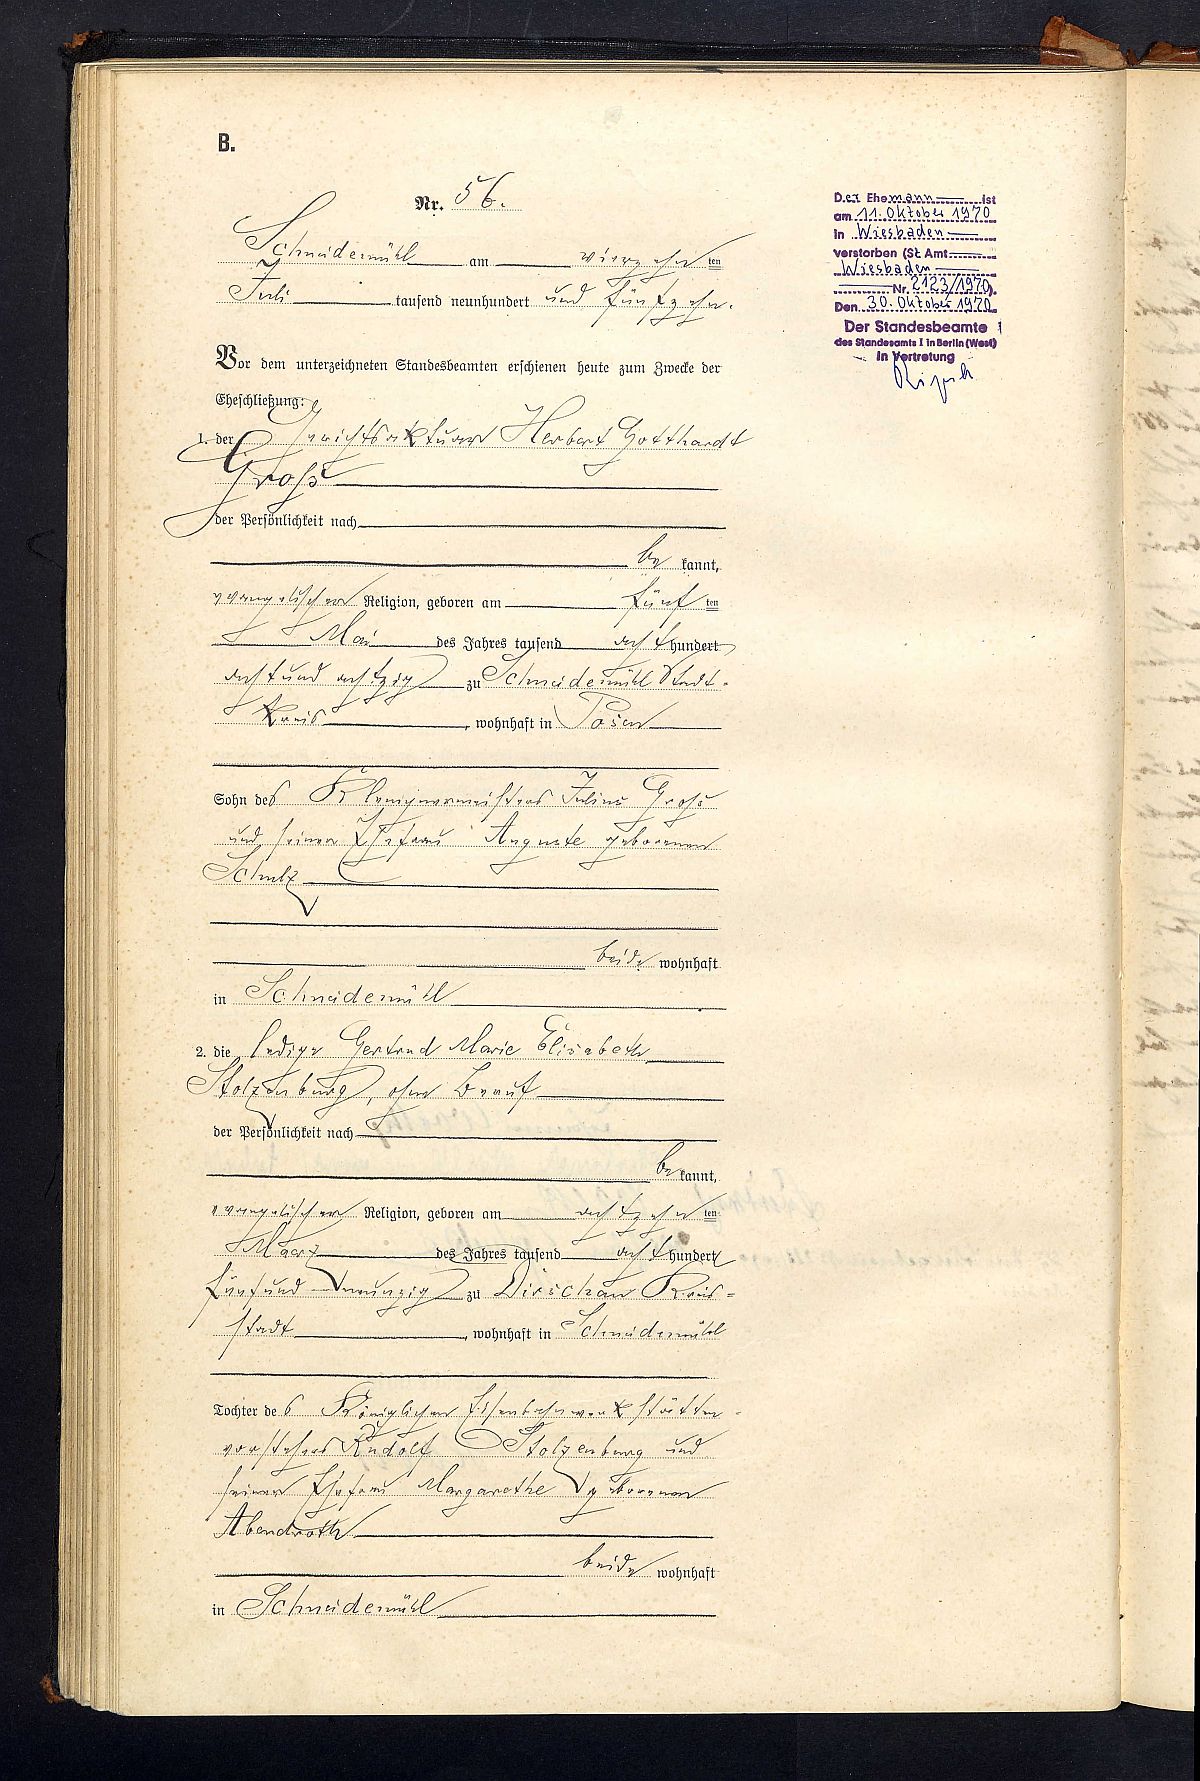 B.
Nr. 56.
Schneidemühl am vierzehnten
Juli tausend neunhundert und fünfzehn.
Vor dem unterzeichneten Standesbeamten erschienen heute zum Zwecke der
Eheschließung:
1. der Gerichtsaktuar Herbert Gotthardt
Groß
der Persönlichkeit nach
be kannt,
evangelischer Religion, geboren am fünften
Mai des Jahres tausend acht hundert
achtundachtzig zu Schneidemühl Stadt-
kreis, wohnhaft in Posen
Sohn des Klempnermeisters Julius Groß
und seiner Ehefrau Auguste geborenen
Schulz
beide wohnhaft
in Schneidemühl
2. die ledige Gertrud Marie Elisabeth
Stolzenburg, ohne Beruf
der Persönlichkeit nach
be kannt,
evangelischer Religion, geboren am achtzehnten
März des Jahres tausend acht hundert
fünfundneunzig zu Dirschau Kreis-
stadt, wohnhaft in Schneidemühl
Tochter des Königlichen Eisenbahnwerkstätten-
vorstehers Rudolf Stolzenburg und
seiner Ehefrau Margarethe geborenen
Abendroth
beide wohnhaft
in Schneidemühl
Der Ehemann ist
am 11. Oktober 1970
in Wiesbaden
verstorben (St. Amt
Wiesbaden
Nr. 2123/1970).
Den 30. Oktober 1970
Der Standesbeamte
des Standesamts I in Berlin (West)
In Vertretung